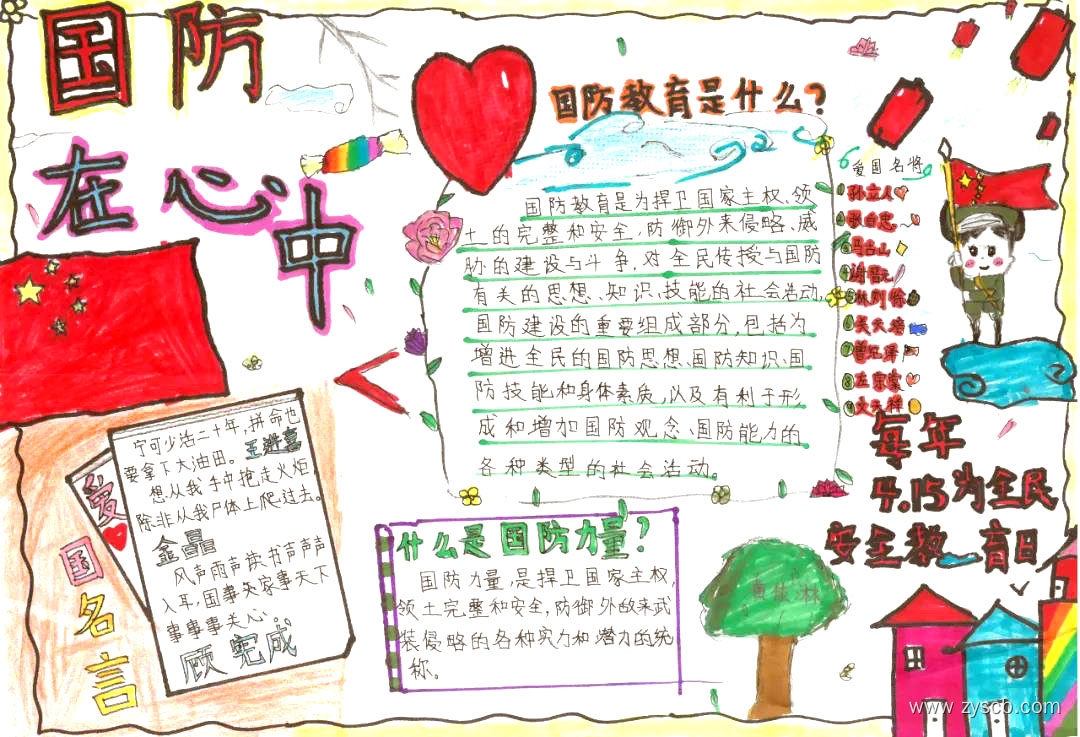 国防
在心中
国防教育是什么?
国防教育是为捍卫国家主权、领
土的完整和安全,防御外来侵略、威
胁的建设与斗争,对全民传授与国防
有关的思想、知识、技能的社会活动,
国防建设的重要组成部分,包括为
增进全民的国防思想、国防知识、国
防技能和身体素质,以及有利于形
成和增加国防观念、国防能力的
各种类型的社会活动。
爱国名将
①孙立人
②张自忠
③马占山
④谢晋元
⑤林则徐
⑦曾纪泽
⑧左宗棠
⑨文天祥
每年
4.15为全民
安全教育日
爱
国
名
言
宁可少活二十年,拼命也
要拿下大油田。王进喜
想从我手中抢走火炬,
除非从我尸体上爬过去。
金晶
风声雨声读书声声声
入耳,国事家事天下
事事事关心
顾宪成
什么是国防力量?
国防力量,是捍卫国家主权,
领土完整和安全,防御外敌来武
装侵略的各种实力和潜力的统
称。
www.zyscb.com